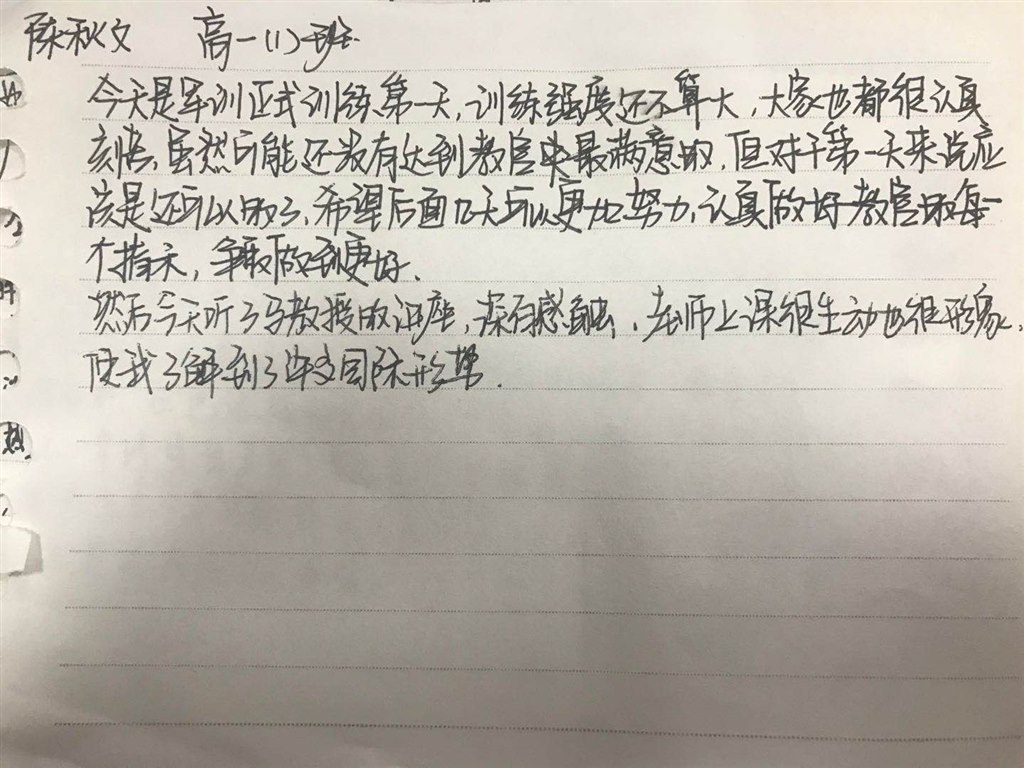 陈秋文 高一(1)班
今天是军训正式训练第一天,训练强度还不算大,大家也都很认真
刻苦,虽然可能还没有达到教官最满意的,但对于第一天来说应
该是还可以的了,希望后面几天可以更加努力,认真做好教官的每一
个指示,争取做到更好.
然后今天听了马教授的讲座,深有感触,老师上课很生动也很形象,
使我了解到了许多国际形势.